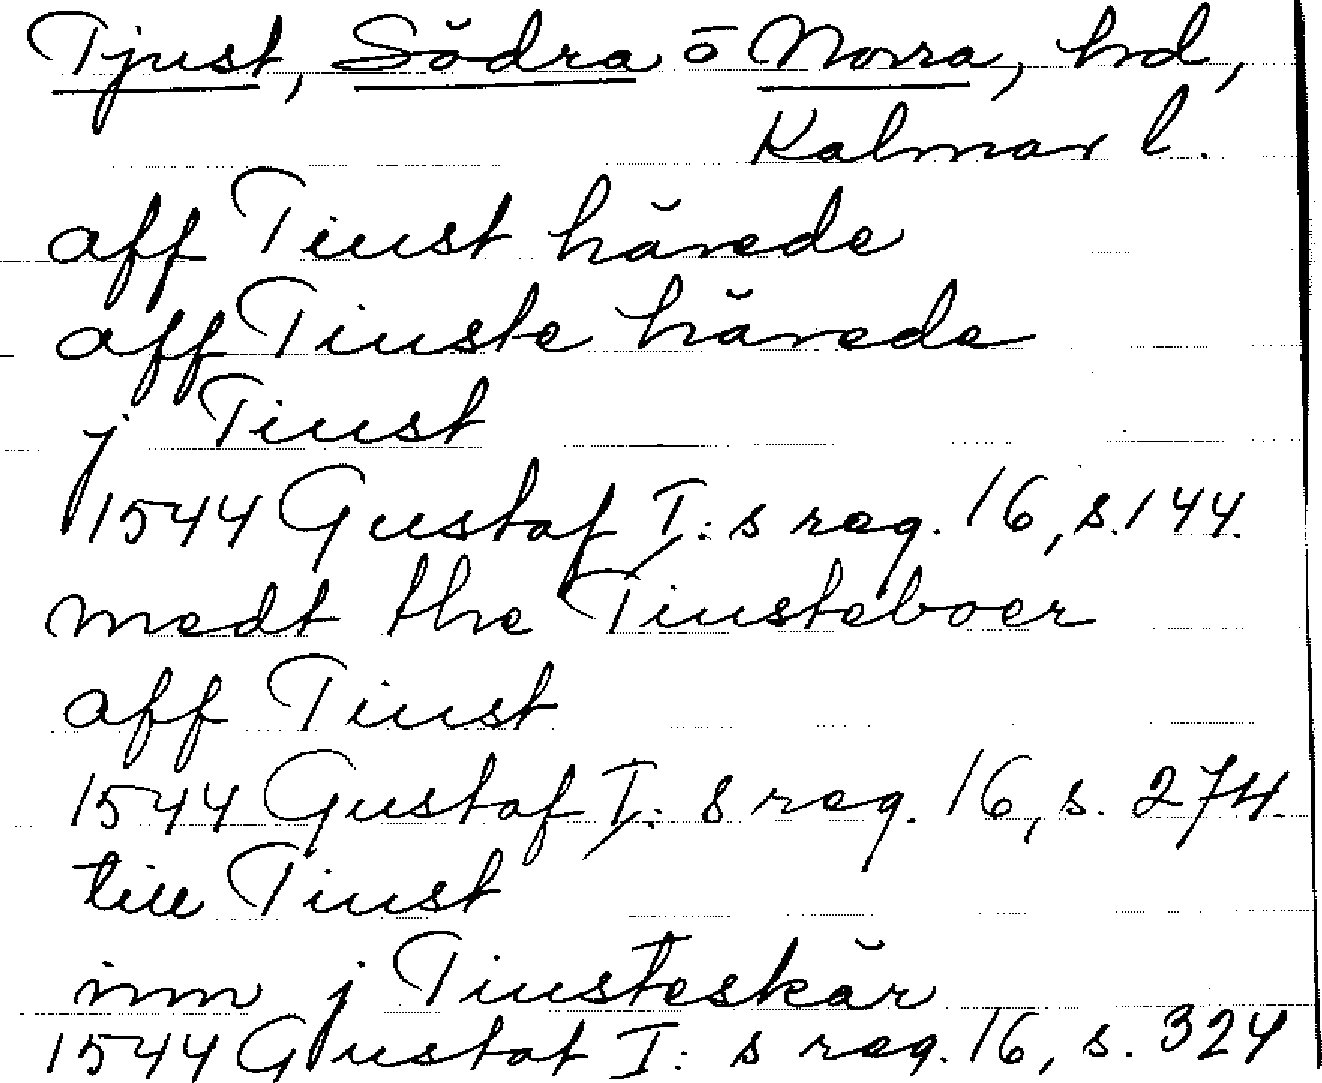 Tjust, Södra o Norra, hd,
Kalmar l.
aff Tiust härede
aff Tiuste härede
j Tiust
1544 Gustaf I:s reg. 16, s. 144.
medt the Tiusteboer
aff Tiust
1544 Gustaf I:s reg. 16, s. 274.
till Tiust
inn j Tiusteskär
1544 Gustaf I:s reg. 16, s. 324